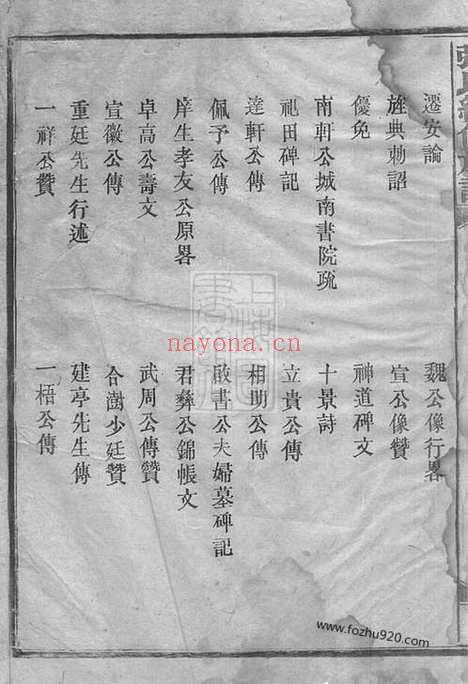 遷安論 魏公像行畧
旌典勅詔 宣公像贊
優免 神道碑文
南軒公城南書院疏 十景詩
祀田碑記 立貴公傳
達軒公傳 相助公傳
佩予公傳 啟書公夫婦墓碑記
庠生孝友公原畧 君彝公錦帳文
卓高公壽文 武周公傳贊
宣徽公傳 合澍少廷贊
重廷先生行述 建亭先生傳
一祥公贊 一梧公傳
nayona.cn
www.fozhu920.com